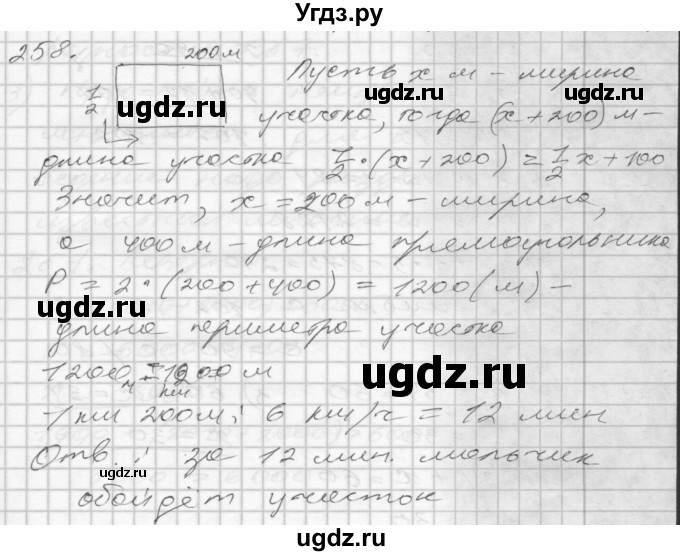 Угдз.ру
258.
200м
1/2
Пусть x м - ширина
участка, тогда (x + 200) м -
длина участка 1/2 · (x + 200) = 1/2 x + 100
Значит, x = 200 м - ширина,
а 400 м - длина прямоугольника
P = 2 · (200 + 400) = 1200 (м) -
длина периметра участка
1200 м =
1 км 200 м : 6 км/ч = 12 мин
Отв.: за 12 мин. мальчик
обойдёт участок
ugdz.ru
ugdz.ru
ugdz.ru
ugdz.ru
ugdz.ru
ugdz.ru
ugdz.ru
ugdz.ru